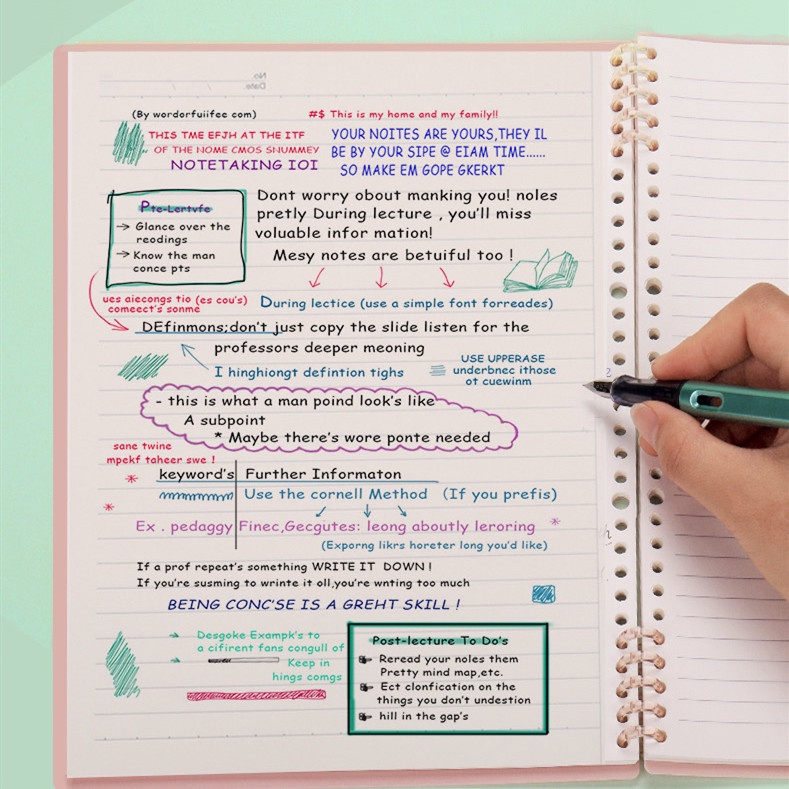 No.
Date.
(By wordorfuiifee com)
#$ This is my home and my family!!
THIS TME EFJH AT THE ITF
OF THE NOME CMOS SNUMMEY
NOTETAKING IOI
YOUR NOITES ARE YOURS,THEY IL
BE BY YOUR SIPE @ EIAM TIME......
SO MAKE EM GOPE GKERKT
Pte-Lertvfe
→ Glance over the
reodings
→ Know the man
conce pts
Dont worry obout manking you! noles
pretly During lecture , you'll miss
voluable infor mation!
Mesy notes are betuiful too !
ues aiecongs tio (es cou's)
comeect's sonme
During lectice (use a simple font forreades)
DEfinmons;don't just copy the slide listen for the
professors deeper meoning
I hinghiongt defintion tighs
USE UPPERASE
underbnec ithose
ot cuewinm
- this is what a man poind look's like
A subpoint
* Maybe there's wore ponte needed
sane twine
mpekf taheer swe !
keyword's Further Informaton
Use the cornell Method (If you prefis)
Ex . pedaggy Finec,Gecgutes: leong aboutly leroring
(Exporng likrs horeter long you'd like)
If a prof repeat's something WRITE IT DOWN !
If you're susming to wrinte it oll,you're wnting too much
BEING CONC'SE IS A GREHT SKILL !
Desgoke Exampk's to
a cifirent fans congull of
Keep in
hings comgs
Post-lecture To Do's
Reread your noles them
Pretty mind map,etc.
Ect clonfication on the
things you don't undestion
hill in the gap's